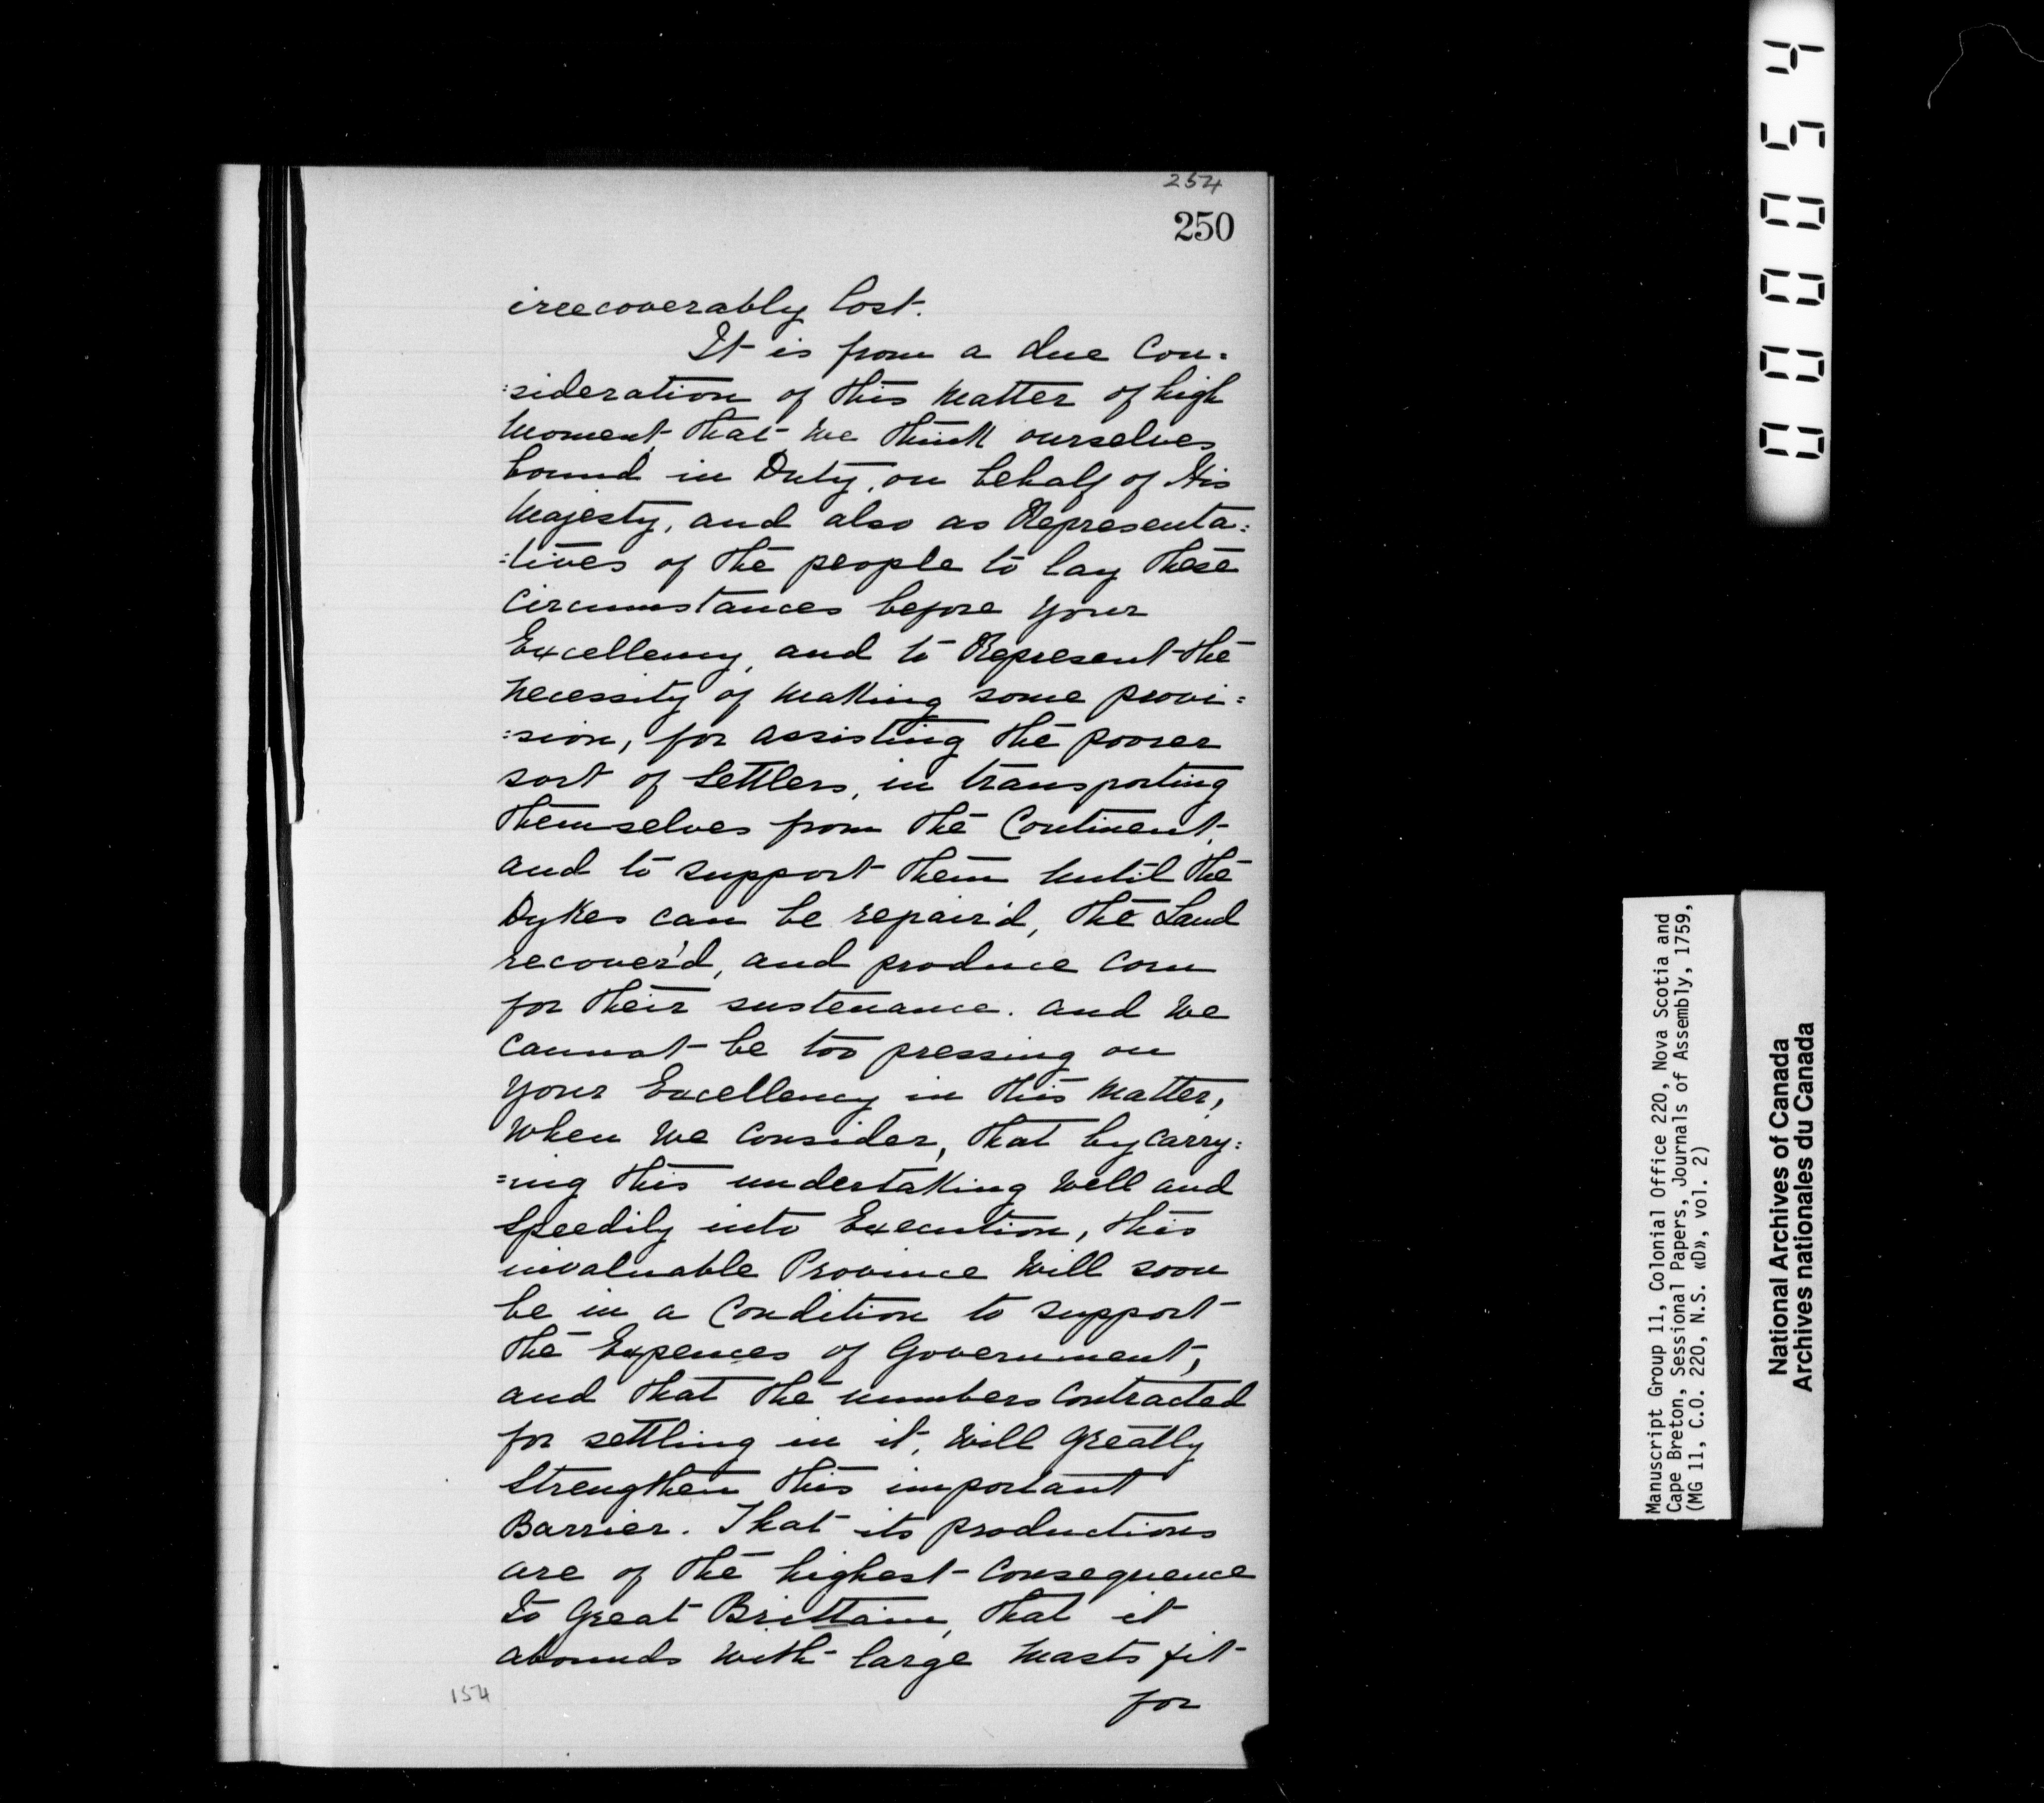 254
250
irrecoverably lost.
It is from a due Con=
=sideration of this matter of high
moment, that we think ourselves
bound in Duty, on behalf of His
Majesty, and also as Representa=
=tives of the people to lay these
circumstances before your
Excellency, and to Represent the
necessity of making some provi=
=sion, for assisting the poorer
sort of Settlers, in transporting
themselves from the Continent,
and to support them until the
Dykes can be repair'd, the Land
recover'd, and produce corn
for their sustenance. and we
cannot be too pressing on
your Excellency in this matter,
when we consider, that by carry=
=ing this undertaking well and
speedily into Execution, this
invaluable Province will soon
be in a Condition to support
the Expences of Government,
and that the numbers contracted
for settling in it, will greatly
strengthen this important
Barrier. That its productions
are of the highest Consequence
to Great Brittain, that it
abounds with large masts fit
for
154
000054
Manuscript Group 11, Colonial Office 220, Nova Scotia and
Cape Breton, Sessional Papers, Journals of Assembly, 1759,
(MG 11, C.O. 220, N.S. «D», vol. 2)
National Archives of Canada
Archives nationales du Canada